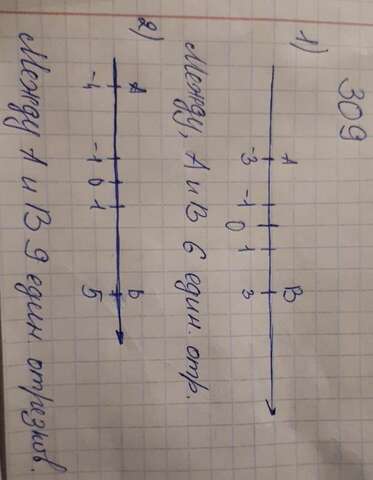 309
1)
А В
-3 -1 0 1 3
Между, А и В 6 един. отр.
2)
А В
-4 -1 0 1 5
Между А и В 9 един. отрезков.